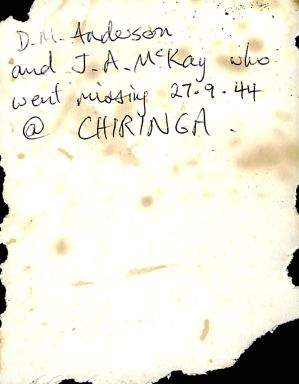 D.M. Anderson
and J.A. McKay who
went missing 27.9.44
@ CHIRINGA.